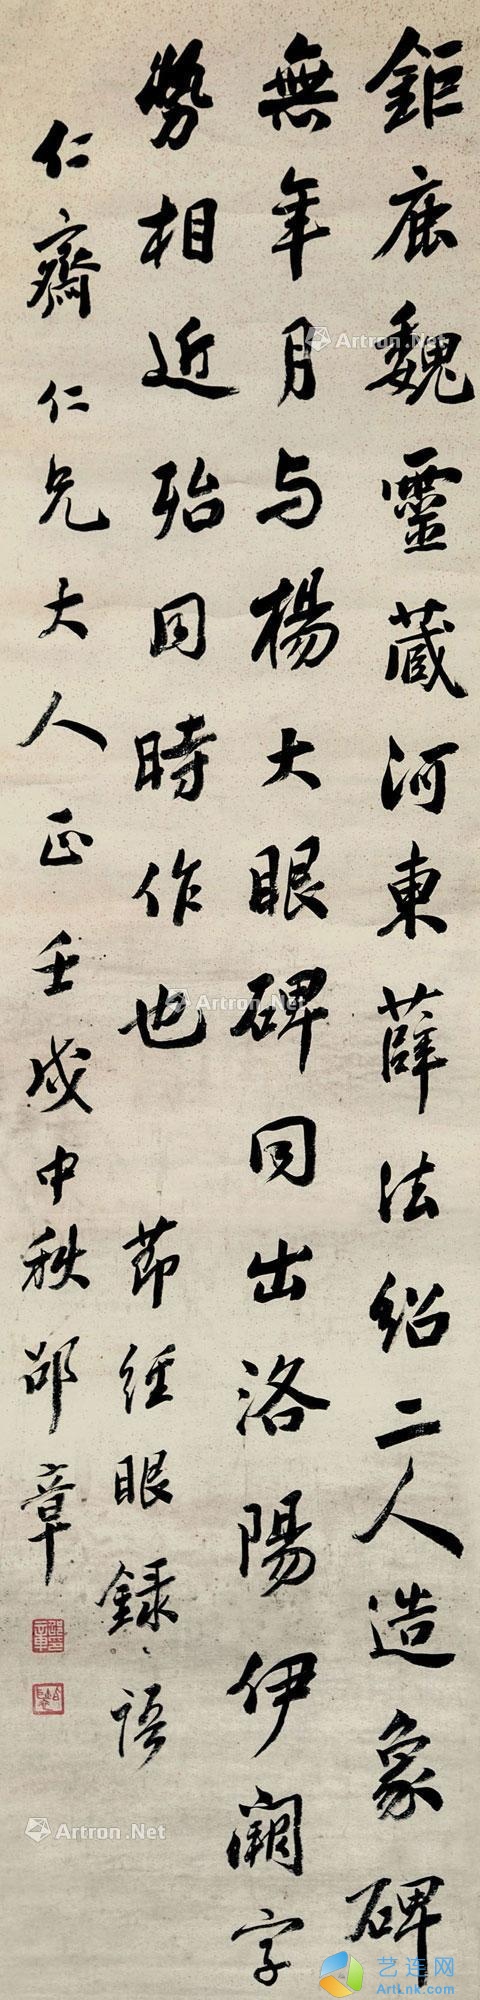 鉅鹿魏靈藏河東薛法紹二人造象碑
無年月与楊大眼碑同出洛陽伊闕字
勢相近殆同時作也 節經眼録語
仁齋仁兄大人正壬戌中秋邵章
Artron.Net
Artron.Net
Artron.Net
Artron.Net
艺连网
ArtLnk.com